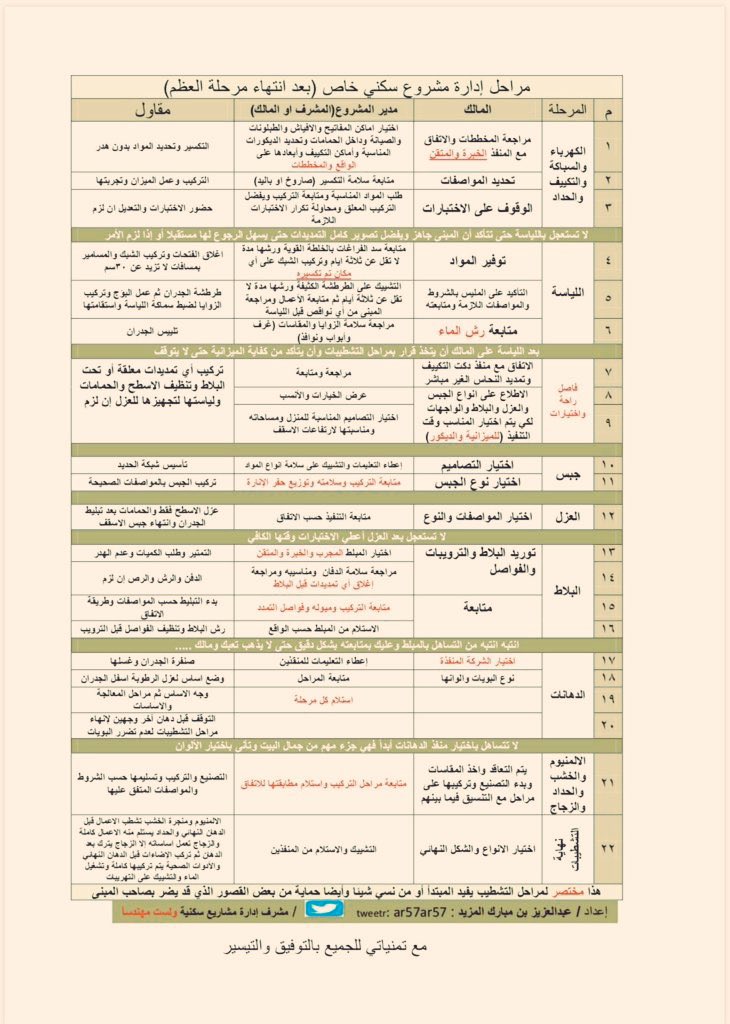 مراحل إدارة مشروع سكني خاص (بعد انتهاء مرحلة العظم)
م المرحلة المالك مدير المشروع(المشرف او المالك) مقاول
١ الكهرباء والسباكة والتكييف والحداد مراجعة المخططات والاتفاق مع المنفذ الخبرة والمتقن اختيار اماكن المفاتيح والافياش والطبلونات والصيانة وداخل الحمامات وتحديد الديكورات المناسبة وأماكن التكييف وأبعادها على الواقع والمخططات التكسير وتحديد المواد بدون هدر
٢ تحديد المواصفات متابعة سلامة التكسير (صاروخ او باليد) التركيب وعمل الميزان وتجربتها
٣ الوقوف على الاختبارات طلب المواد المناسبة ومتابعة التركيب ويفضل التركيب المعلق ومحاولة تكرار الاختبارات اللازمة حضور الاختبارات والتعديل ان لزم
لا تستعجل باللياسة حتى تتأكد أن المبنى جاهز ويفضل تصوير كامل التمديدات حتى يسهل الرجوع لها مستقبلا أو إذا لزم الأمر
٤ اللياسة توفير المواد متابعة سد الفراغات بالخلطة القوية ورشها مدة لا تقل عن ثلاثة ايام وتركيب الشبك على أي مكان تم تكسيره إغلاق الفتحات وتركيب الشبك والمسامير بمسافات لا تزيد عن ٣٠سم
٥ التأكيد على المليس بالشروط والمواصفات اللازمة ومتابعته التشييك على الطرطشة الكثيفة ورشها مدة لا تقل عن ثلاثة أيام ثم متابعة الأعمال ومراجعة المبنى من أي نواقص قبل اللياسة طرطشة الجدران ثم عمل البؤج وتركيب الزوايا لضبط سماكة اللياسة واستقامتها
٦ متابعة رش الماء مراجعة سلامة الزوايا والمقاسات (غرف وابواب ونوافذ) تلييس الجدران
بعد اللياسة على المالك أن يتخذ قرار بمراحل التشطيبات وأن يتأكد من كفاية الميزانية حتى لا يتوقف
٧ فاصل راحة واختيارات الاتفاق مع منفذ دكت التكييف وتمديد النحاس الغير مباشر مراجعة ومتابعة تركيب أي تمديدات معلقة أو تحت البلاط وتنظيف الاسطح والحمامات ولياستها لتجهيزها للعزل إن لزم
٨ الاطلاع على انواع الجبس والعزل والبلاط والواجهات لكي يتم اختيار المناسب وقت التنفيذ (للميزانية والديكور) عرض الخيارات والأنسب
٩ اختيار التصاميم المناسبة للمنزل ومساحاته ومناسبتها لارتفاعات الاسقف
١٠ جبس اختيار التصاميم إعطاء التعليمات والتشييك على سلامة انواع المواد تأسيس شبكة الحديد
١١ اختيار نوع الجبس متابعة التركيب وسلامته وتوزيع حفر الانارة تركيب الجبس بالمواصفات الصحيحة
١٢ العزل اختيار المواصفات والنوع متابعة التنفيذ حسب الاتفاق عزل الاسطح فقط والحمامات بعد تبليط الجدران وانتهاء جبس الاسقف
لا تستعجل بعد العزل أعطي الاختبارات وقتها الكافي
١٣ البلاط توريد البلاط والترويبات والفواصل اختيار المبلط المجرب والخبرة والمتقن التمتير وطلب الكميات وعدم الهدر
١٤ مراجعة سلامة الدفان ومناسيبه ومراجعة إغلاق أي تمديدات قبل البلاط الدفن والرش والرص إن لزم
١٥ متابعة متابعة التركيب وميوله وفواصل التمدد بدء التبليط حسب المواصفات وطريقة الاتفاق
١٦ الاستلام من المبلط حسب الواقع رش البلاط وتنظيف الفواصل قبل الترويب
انتبه انتبه من التساهل بالمبلط وعليك بمتابعته بشكل دقيق حتى لا يذهب تعبك ومالك .....
١٧ الدهانات اختيار الشركة المنفذة إعطاء التعليمات للمنفذين صنفرة الجدران وغسلها
١٨ نوع البويات والوانها متابعة المراحل وضع اساس لعزل الرطوبة اسفل الجدران
١٩ استلام كل مرحلة وجه الاساس ثم مراحل المعالجة والاساسات
٢٠ التوقف قبل دهان آخر وجهين لإنهاء مراحل التشطيبات لعدم تضرر البويات
لا تتساهل باختيار منفذ الدهانات أبدا فهي جزء مهم من جمال البيت وتأنى باختيار الالوان
٢١ الالمنيوم والخشب والحداد والزجاج يتم التعاقد واخذ المقاسات وبدء التصنيع وتركيبها على مراحل مع التنسيق فيما بينهم متابعة مراحل التركيب واستلام مطابقتها للاتفاق التصنيع والتركيب وتسليمها حسب الشروط والمواصفات المتفق عليها
٢٢ نهاية التشطيبات اختيار الانواع والشكل النهائي التشييك والاستلام من المنفذين الالمنيوم ومنجرة الخشب تشطب الاعمال قبل الدهن النهائي والحداد يستلم منه الاعمال كاملة والزجاج تعمل اساساته إلا الزجاج يترك بعد الدهن ثم تركب الاضاءات قبل الدهان النهائي والادوات الصحية يتم تركيبها كاملة وتشغيل الماء والتشييك على التهريبات
هذا مختصر لمراحل التشطيب يفيد المبتدأ أو من نسي شيئا وأيضا حماية من بعض القصور الذي قد يضر بصاحب المبنى
إعداد / عبدالعزيز بن مبارك المزيد : tweetr: ar57ar57 / مشرف إدارة مشاريع سكنية ولست مهندسا
مع تمنياتي للجميع بالتوفيق والتيسير